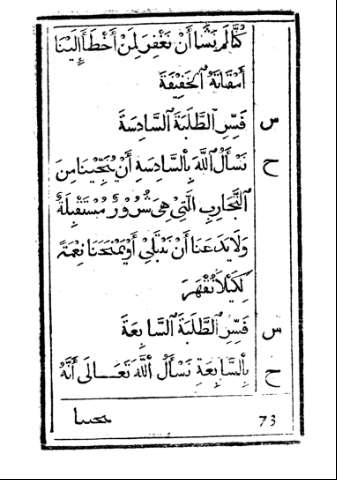 كُنَّا لَمْ نَشَأْ أَنْ نَغْفِرَ لِمَنْ أَخْطَأَ إِلَيْنَا
الْخَفِيفَةَ
س فَسِّرِ الطَّلِبَةَ السَّادِسَةَ
ح نَسْأَلُ اللَّهَ بِالسَّادِسَةِ أَنْ يُنَجِّيَنَا مِنَ
التَّجَارِبِ الَّتِي هِيَ شُرُورٌ مُسْتَقْبِلَةٌ
وَلَا يَدَعَنَا أَنْ نَبْتَلِي أَوْ يَمْنَحَنَا نِعْمَةً
لِكَيْلَا نُقْهَرَ
س فَسِّرِ الطَّلِبَةَ السَّابِعَةَ
ح بِالسَّابِعَةِ نَسْأَلُ اللَّهَ تَعَالَى أَنَّهُ
73